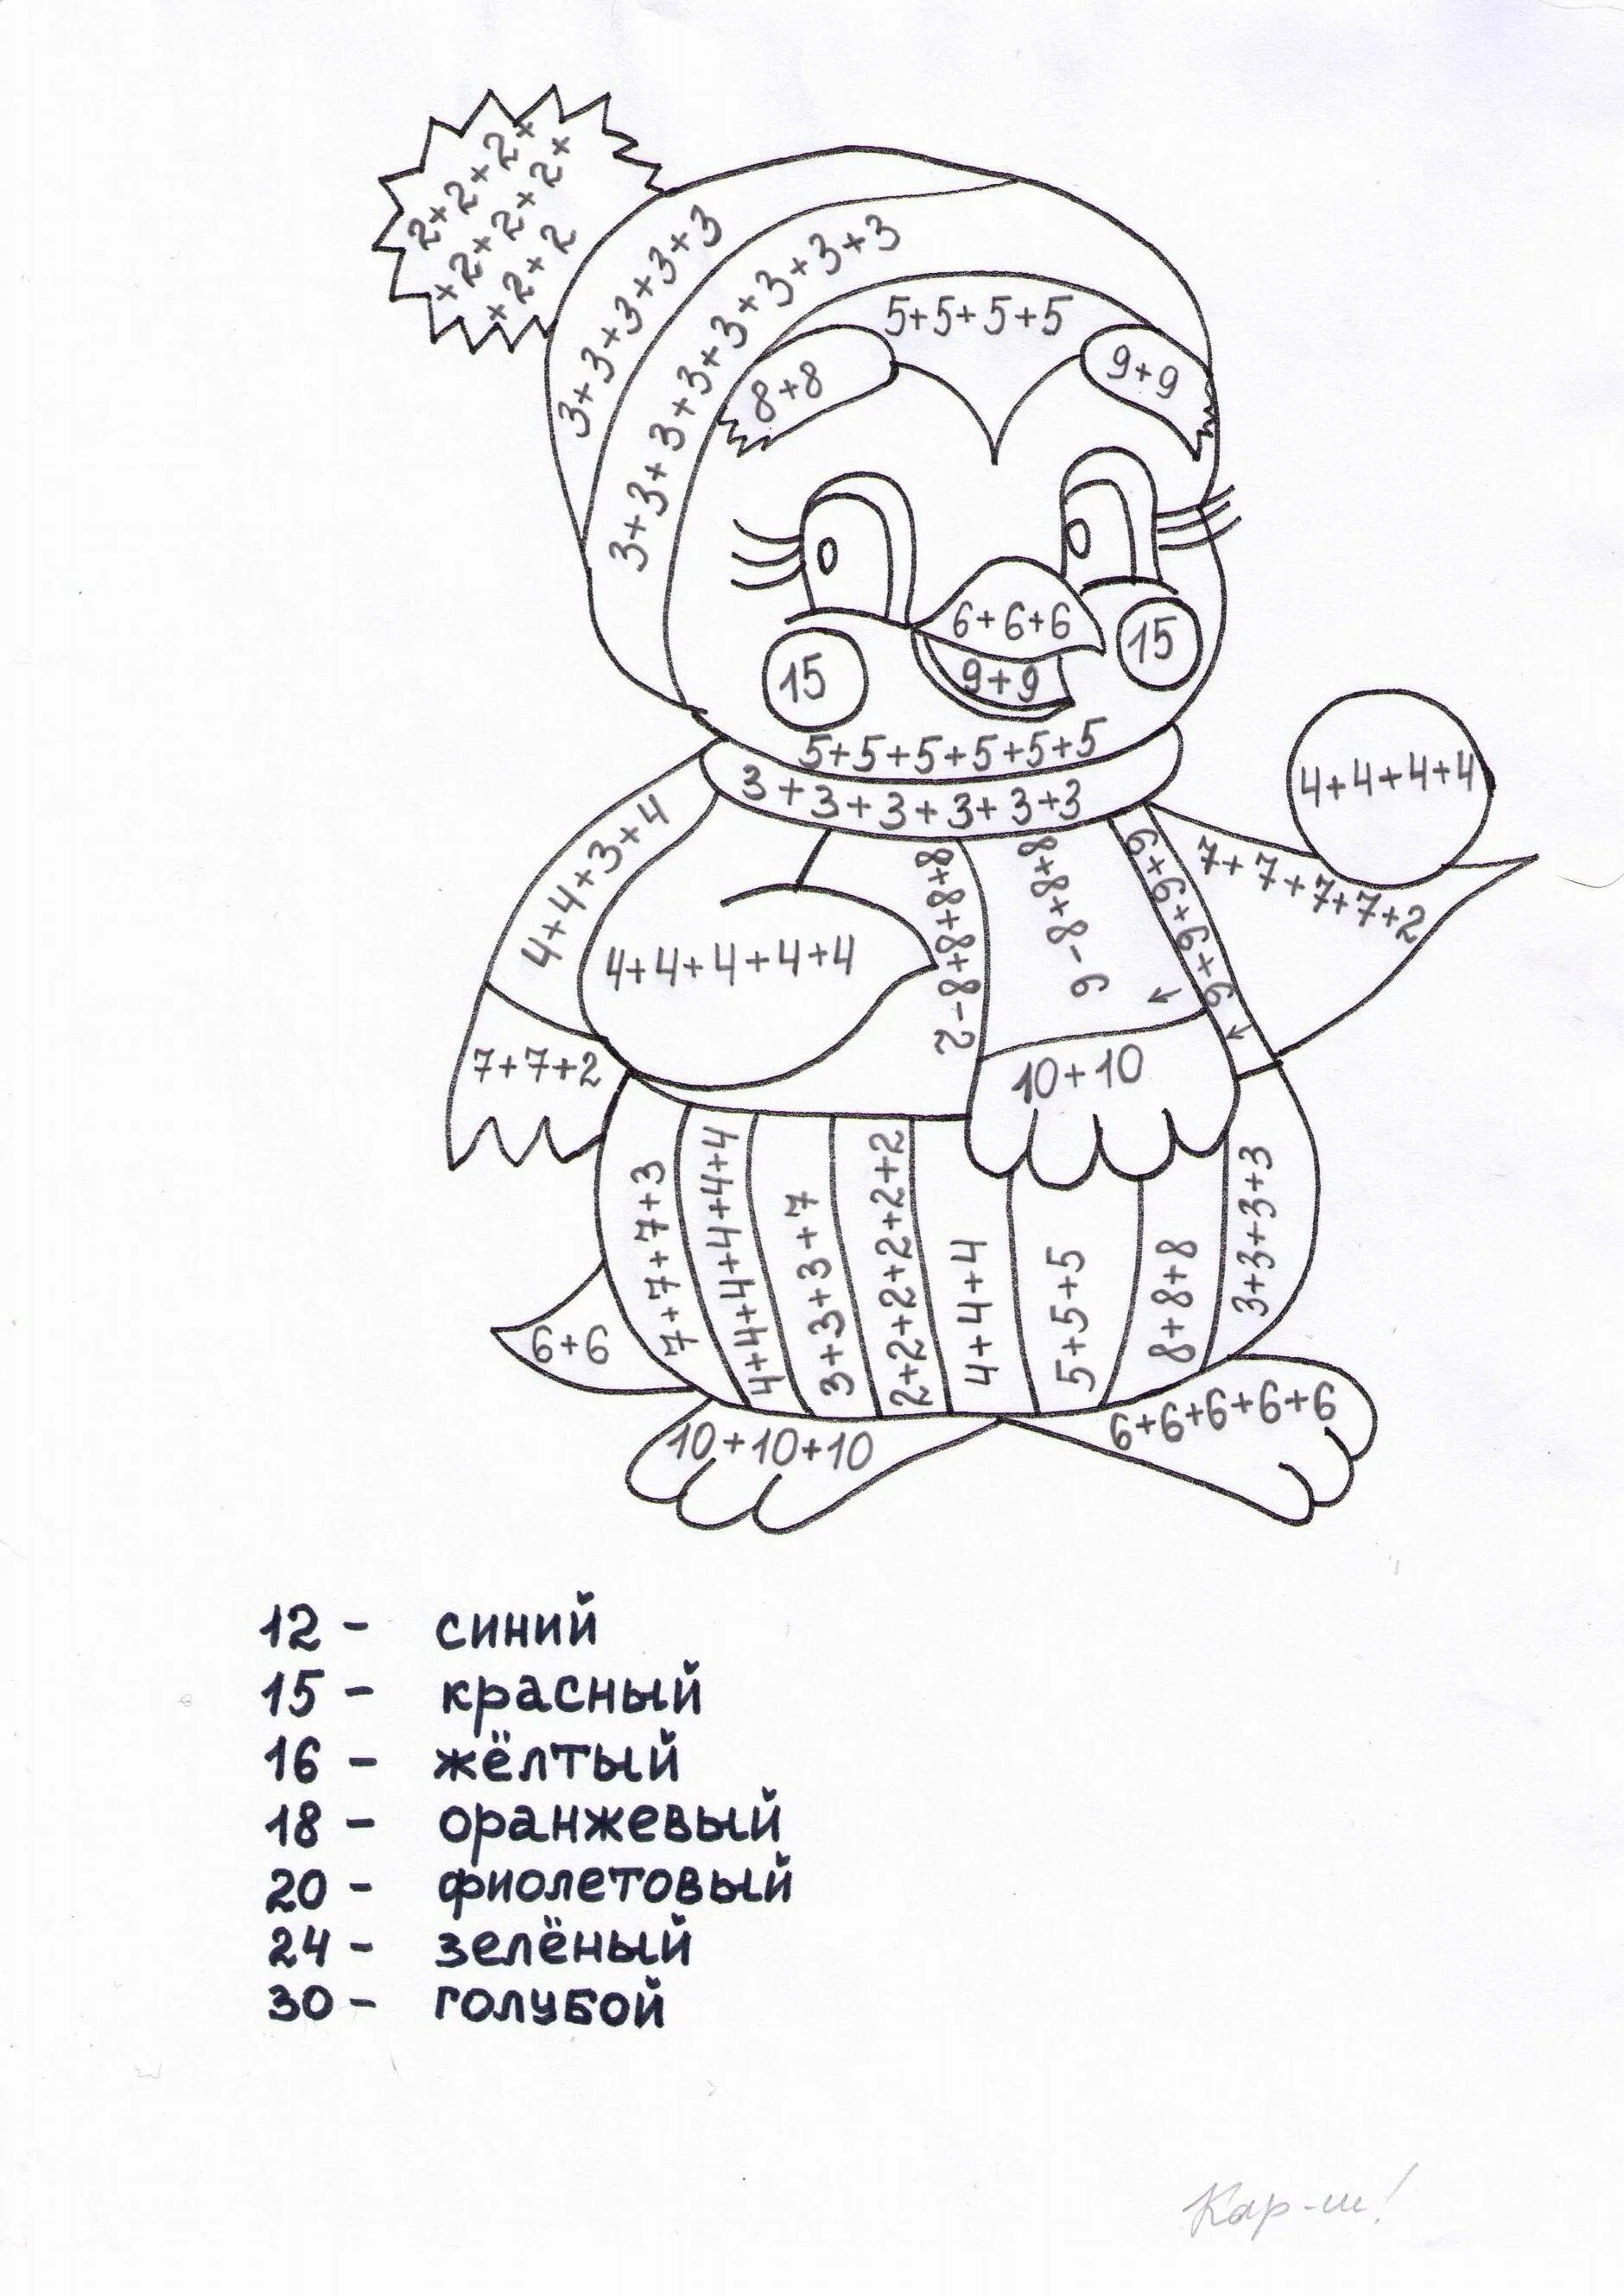 2+2+2+
+2+2+2+
+2+2
3+3+3+3+3
3+3+3+3+3+3+3+3
5+5+5+5
8+8
9+9
6+6+6
9+9
15
15
5+5+5+5+5+5
3+3+3+3+3+3
4+4+4+4
4+4+3+4
7+7+7+7+2
4+4+4+4+4
8+8+8+8-2
8+8+8-6
6+6+6+6
7+7+2
10+10
7+7+7+3
4+4+4+4+4+4
3+3+3+7
2+2+2+2+2+2
4+4+4
5+5+5
8+8+8
3+3+3+3
6+6
10+10+10
6+6+6+6+6
12 - синий
15 - красный
16 - жёлтый
18 - оранжевый
20 - фиолетовый
24 - зелёный
30 - голубой
Кар-ш!